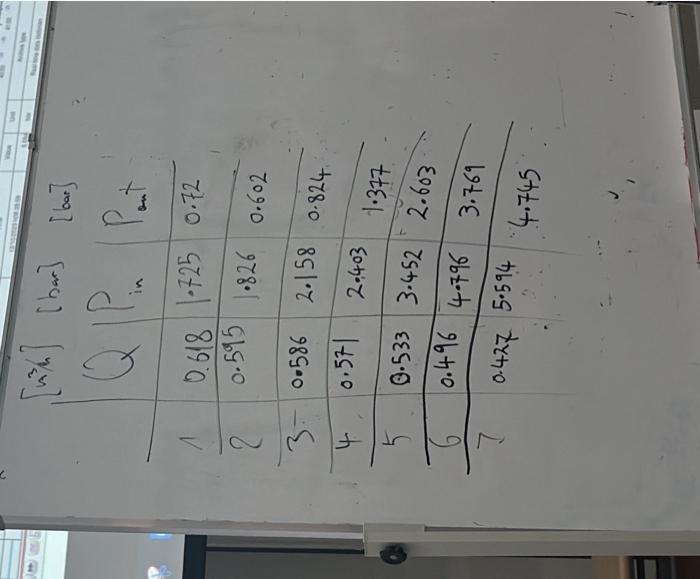 [m³/h] [bar] [bar]
Q Pin Pout
1 0.618 1.725 0.72
2 0.595 1.826 0.602
3 0.586 2.158 0.824
4 0.571 2.403 1.377
5 0.533 3.452 2.603
6 0.496 4.796 3.769
7 0.427 5.594 4.745